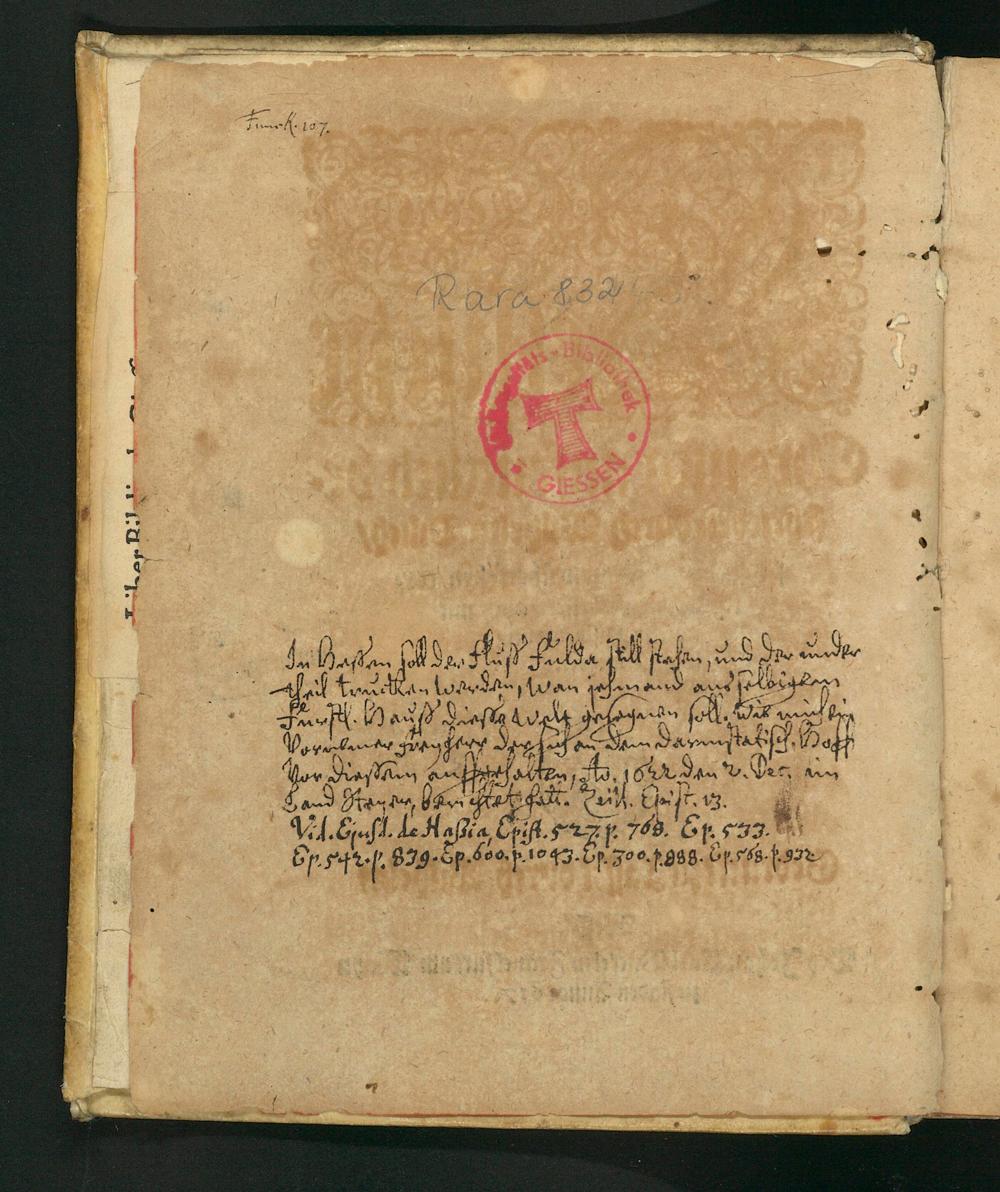 Funck. 107.
Rara 832
Universitäts-Bibliothek
GIESSEN
In Hessen soll der Fluss Fulda still stehen, und der under
theil trucken werden, wan jehmand aus selbigem
Fürstl. Hauss diesse Welt gesegnen soll. wie mich ein
Vornemer Freyherr der sich an dem Darmstatisch. Hoff
Vor diessem auffgehalten, Ao. 1622 den 2. Dec. im
Land Steyer, berichtet hatt. Zeill. Epist. 13.
Vid. Ejusd. de Haßia, Epist. 527. p. 768. Ep. 533.
Ep. 542. p. 839. Ep. 600. p. 1043. Ep. 300. p. 888. Ep. 568. p. 932